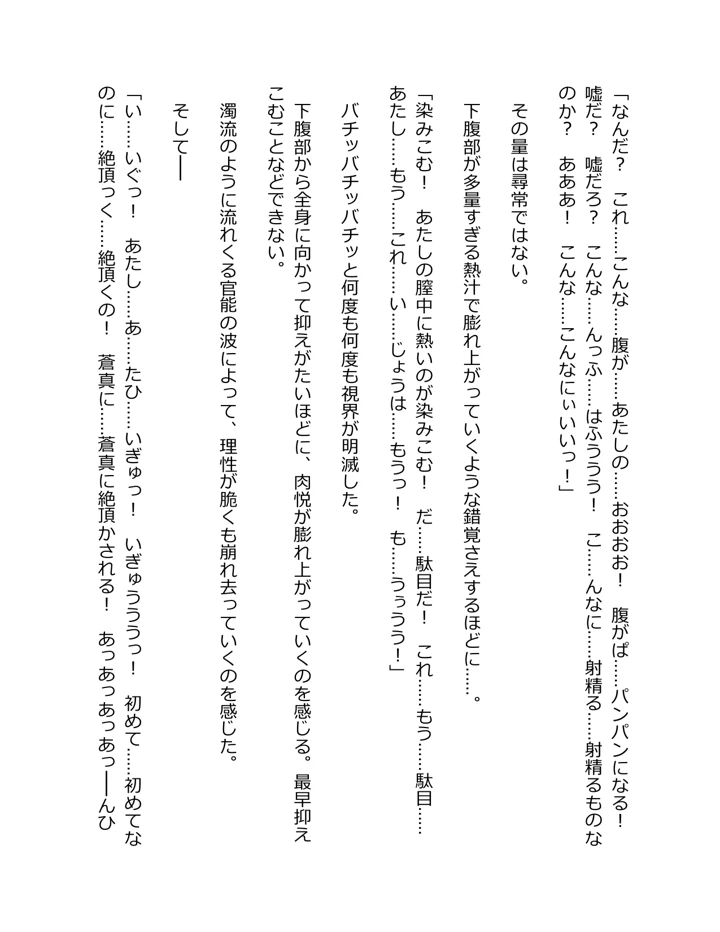 「なんだ？　これ……こんな……腹が……あたしの……おおおお！　腹がぱ……パンパンになる！
嘘だ？　嘘だろ？　こんな……んっふ……はふううう！　こ……んなに……射精る……射精るものな
のか？　あああ！　こんな……こんなにぃいいっ！」
その量は尋常ではない。
下腹部が多量すぎる熱汁で膨れ上がっていくような錯覚さえするほどに……。
「染みこむ！　あたしの膣中に熱いのが染みこむ！　だ……駄目だ！　これ……もう……駄目……
あたし……もう……これ……い……じょうは……もうっ！　も……うぅうう！」
バチッバチッバチッと何度も何度も視界が明滅した。
下腹部から全身に向かって抑えがたいほどに、肉悦が膨れ上がっていくのを感じる。最早抑え
こむことなどできない。
濁流のように流れくる官能の波によって、理性が脆くも崩れ去っていくのを感じた。
そして――
「い……いぐっ！　あたし……あ……たひ……いぎゅっ！　いぎゅうううっ！　初めて……初めてな
のに……絶頂っく……絶頂くの！　蒼真に……蒼真に絶頂かされる！　あっあっあっあっ――んひ